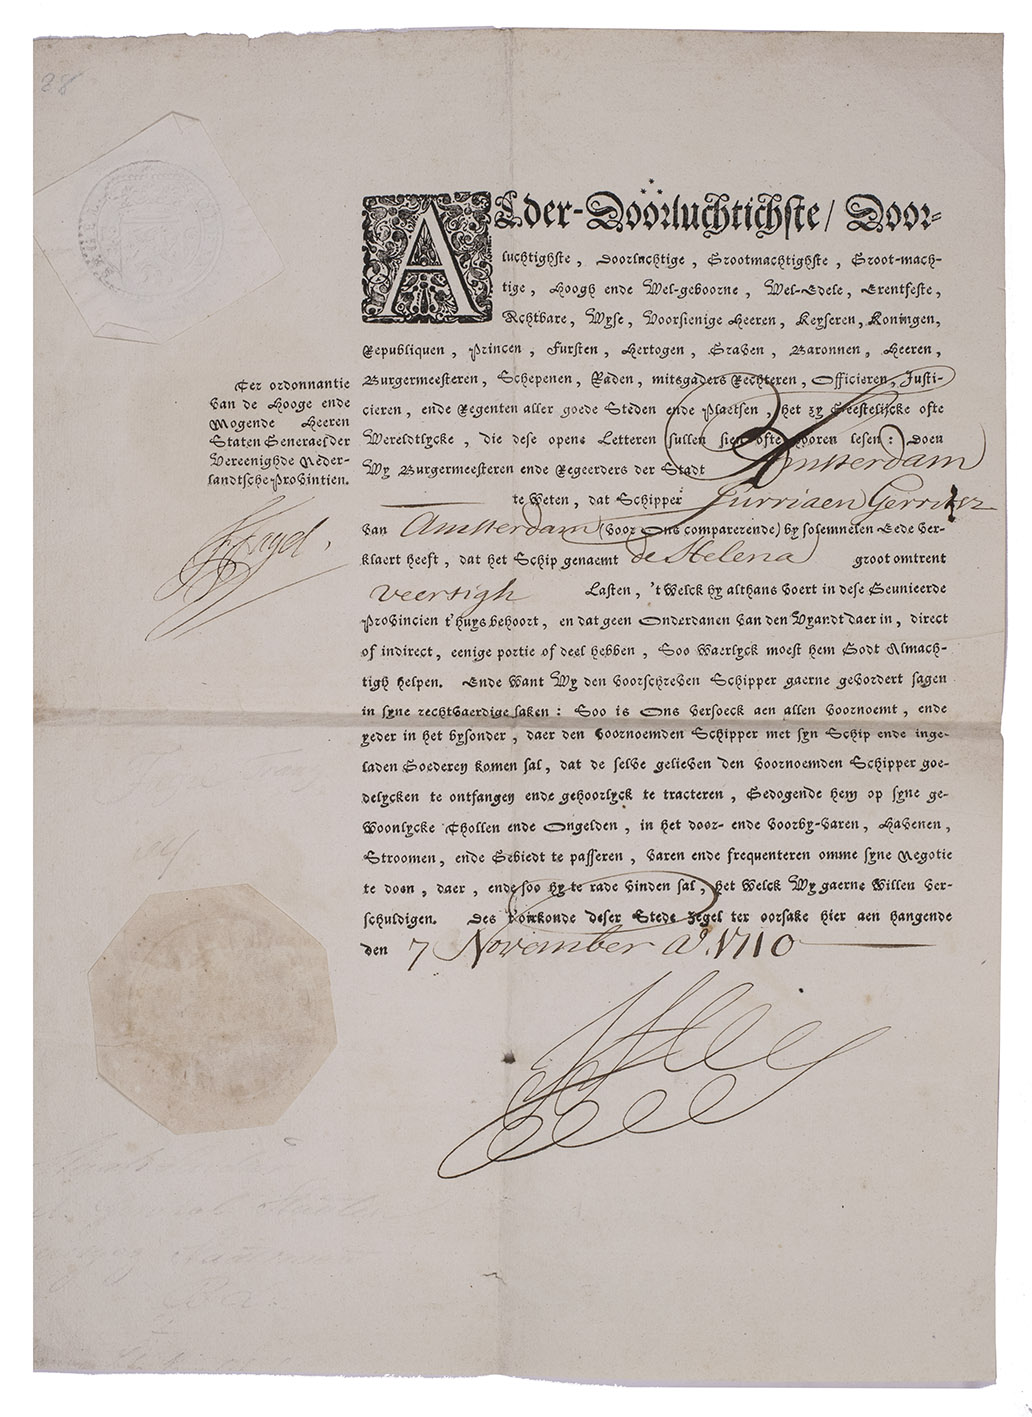 88
ALder-Doorluchtichste / Door-
luchtighste, Doorluchtige, Grootmachtighste, Groot-mach-
tige, Hoogh ende Wel-geboorne, Wel-Edele, Erentfeste,
Achtbare, Wyse, Voorsienige Heeren, Keyseren, Koningen,
Republiquen, Princen, Fursten, Hertogen, Graven, Baronnen, Heeren,
Burgermeesteren, Schepenen, Raden, mitsgaders Rechteren, Officieren, Justi-
cieren, ende Regenten aller goede Steden ende Plaetsen, het zy Geestelijcke ofte
Wereldtlycke, die dese opene Letteren sullen sien ofte hooren lesen: Doen
Wy Burgermeesteren ende Regeerders der Stadt Amsterdam
te weten, dat Schipper Jurriaen Gerritsz
van Amsterdam (voor Ons comparerende) by solemnelen Eede ver-
klaert heeft, dat het Schip genaemt de Helena groot omtrent
veertigh Lasten, 't welck hy althans voert in dese Geunieerde
Provincien t'huys behoort, en dat geen Onderdanen van den Vyandt daer in, direct
of indirect, eenige portie of deel hebben, Soo waerlyck moest hem Godt Almach-
tigh helpen. Ende want Wy den voorschreven Schipper gaerne gevordert sagen
in syne rechtvaerdige saken: Soo is Ons versoeck aen allen voornoemt, ende
yeder in het bysonder, daer den voornoemden Schipper met syn Schip ende inge-
laden Goederen komen sal, dat de selve gelieven den voornoemden Schipper goe-
delycken te ontfangen ende gehoorlyck te tracteren, Gedogende hem op syne ge-
woonlycke Thollen ende Ongelden, in het door- ende voorby-varen, Havenen,
Stroomen, ende Gebiedt te passeren, varen ende frequenteren omme syne Negotie
te doen, daer, ende soo hy te rade vinden sal, het welck Wy gaerne willen ver-
schuldigen. Des t'oirkonde deser Stede Zegel ter oorsake hier aen hangende
den 7 November Ao. 1710
Ter ordonnantie
van de Hooge ende
Mogende Heeren
Staten Generael der
Vereenighde Neder-
landtsche Provintien.